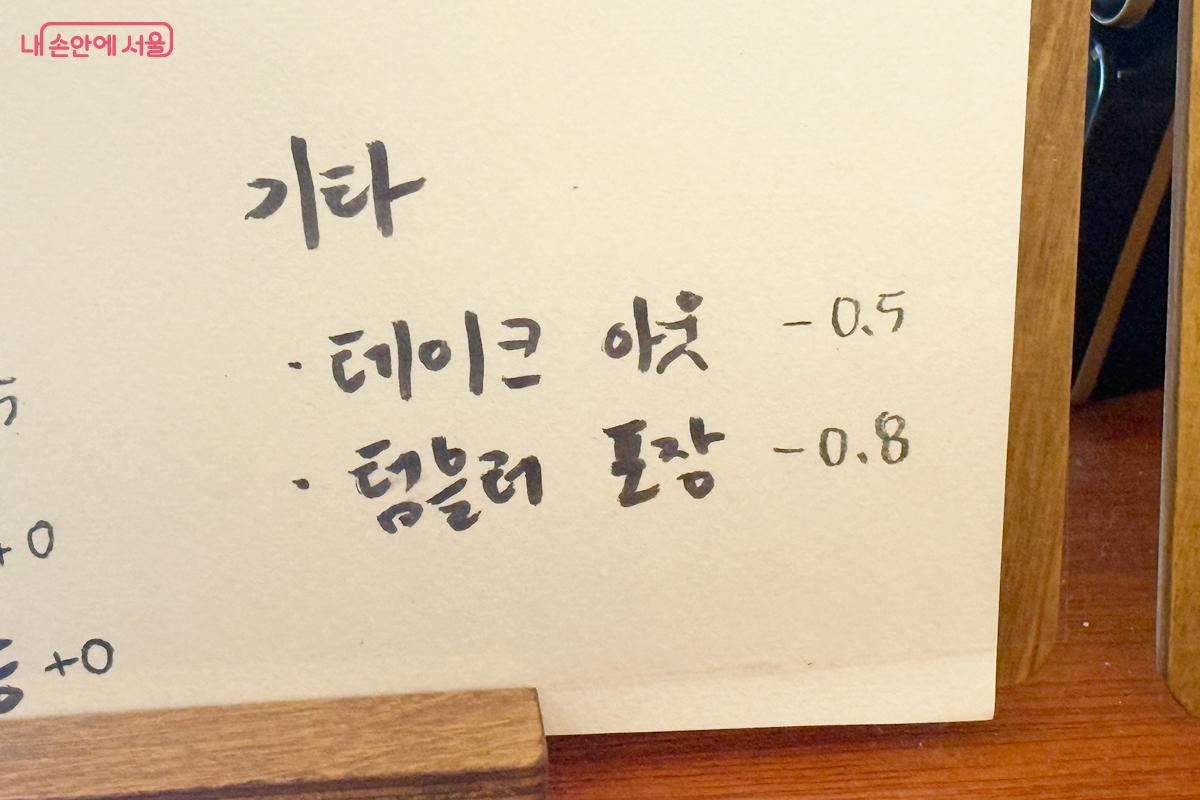 내 손안에 서울
기타
· 테이크 아웃 -0.5
· 텀블러 포장 -0.8
+0
+0